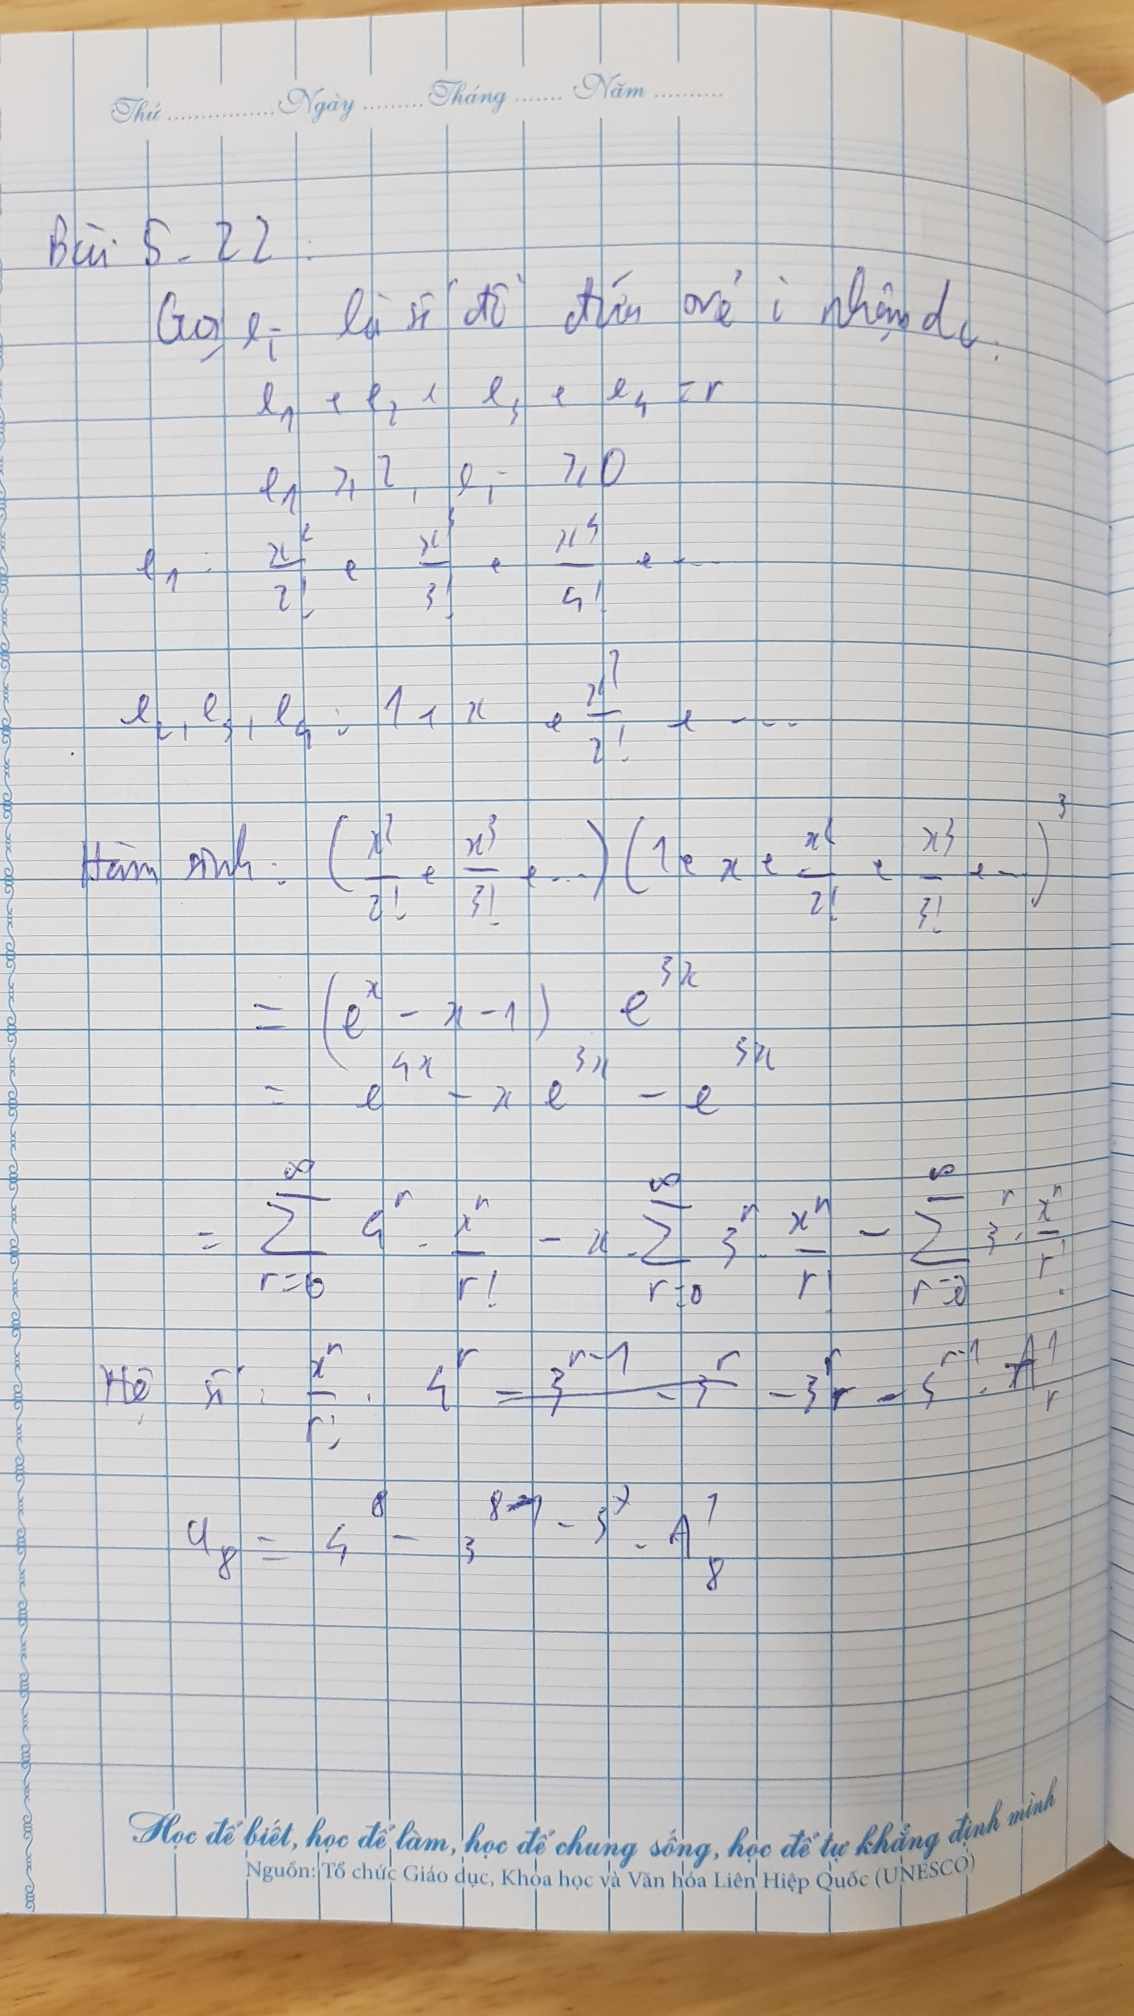 Thứ ............... Ngày ......... Tháng ....... Năm ..........
Bài 5-22:
Gọi e_i là số đồ trẻ i nhận dc.
e_1 + e_2 + e_3 + e_4 = r
e_1 ≥ 2, e_i ≥ 0
e_1: x^2/2! + x^3/3! + x^4/4! + ...
e_2, e_3, e_4: 1 + x + x^2/2! + ...
Hàm sinh: (x^2/2! + x^3/3! + ...)(1 + x + x^2/2! + x^3/3! + ...)^3
= (e^x - x - 1) e^{3x}
= e^{4x} - x e^{3x} - e^{3x}
= ∑_{r=0}^{∞} 4^r · x^r/r! - x · ∑_{r=0}^{∞} 3^r · x^r/r! - ∑_{r=0}^{∞} 3^r · x^r/r!
Hệ số: x^r/r! · 4^r - 3^r - 3^{r-1} · A_r^1
a_8 = 4^8 - 3^8 - 3^7 · A_8^1
Học để biết, học để làm, học để chung sống, học để tự khẳng định mình
Nguồn: Tổ chức Giáo dục, Khoa học và Văn hóa Liên Hiệp Quốc (UNESCO)